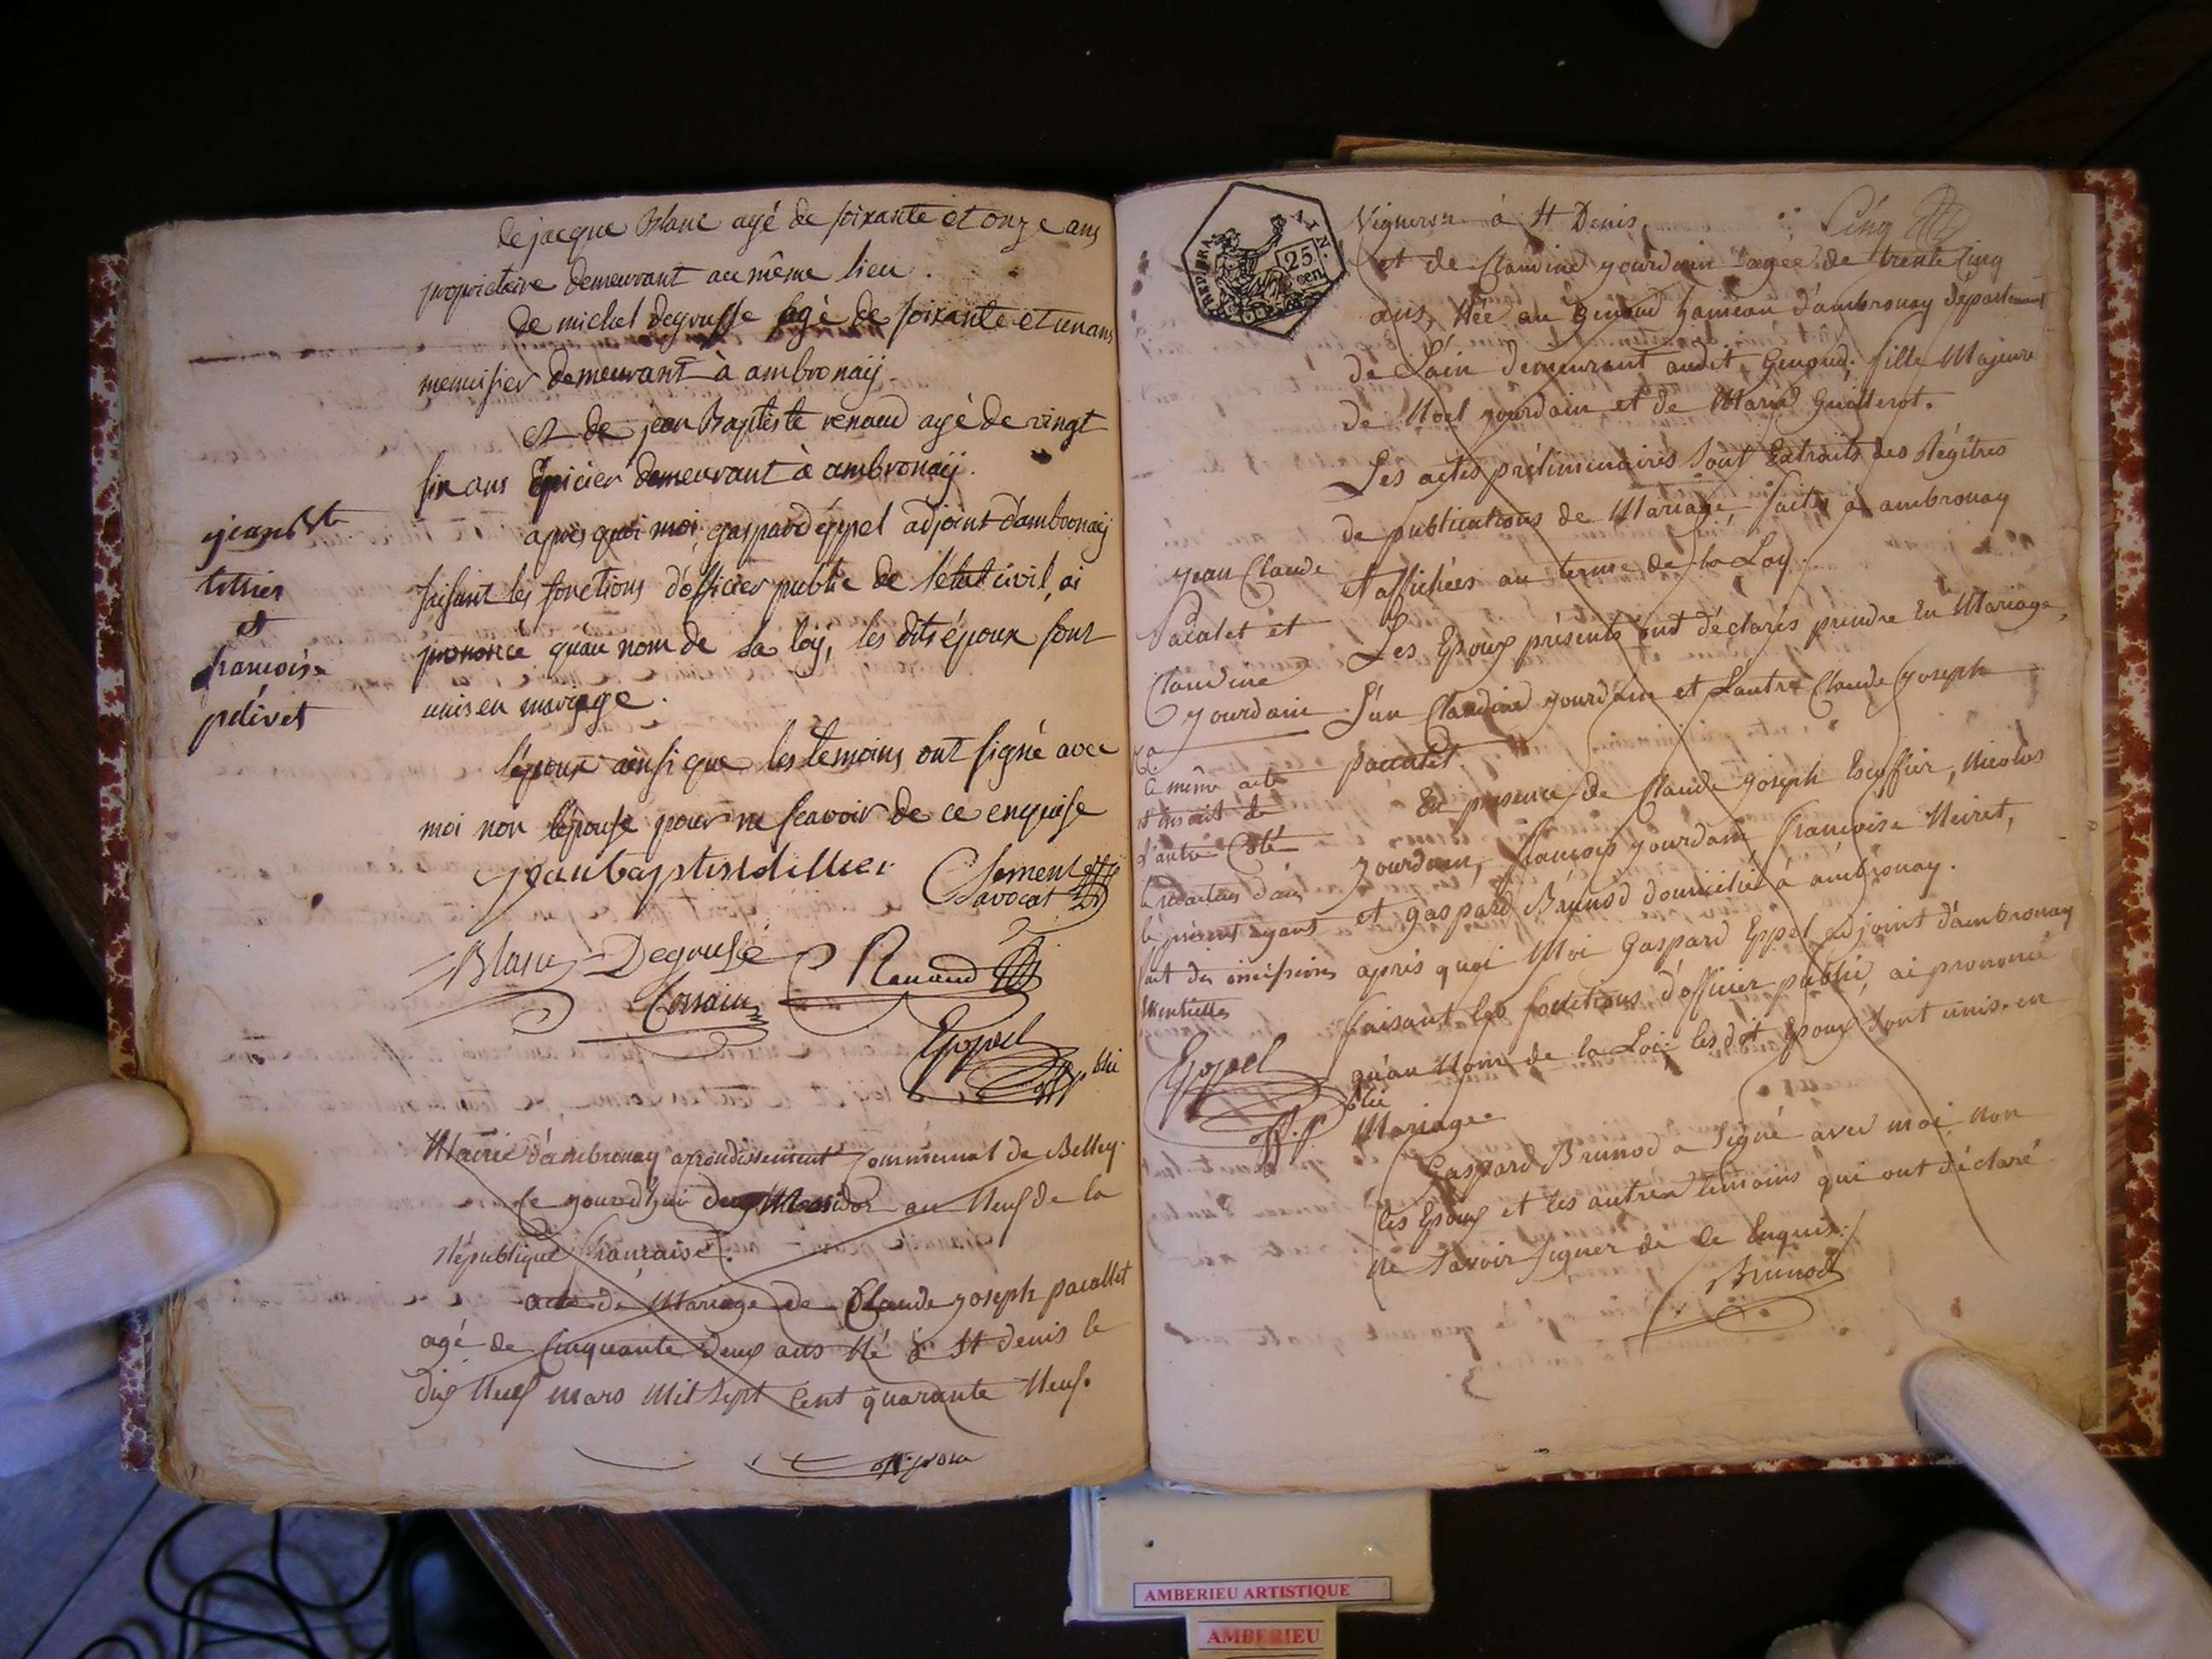 de jacque Blanc agé de soixante et onze ans
propriétaire demeurant au même lieu.
de michel degrusse agé de soixante et un ans
menuisier demeurant à ambronaÿ
et de jean Baptiste renaud agé de vingt
six ans Epicier demeurant à ambronaÿ.
après quoi moi, gaspard éppel adjoint d'ambronaÿ
faisant les fonctions d'officier public de l'etat civil, ai
prononcé qu'au nom de la loÿ, les dits époux sont
unis en mariage.
l'époux ainsi que les temoins ont signé avec
moi non l'épouse pour ne scavoir de ce enquise
jean Bte
et
francoise
pélivet
Clement
avocat
Blanc Degrusse Renaud
Eppel
off. p. blic
Mairie d'ambronay arrondissement communal de Belley.
Ce yourd'hui deux Messidor an Neuf de la
République française.
acte de Mariage de Claude yoseph pacallet
agé de Cinquante deux ans Né à St denis le
dix Neuf mars Mil Sept Cent quarante Neuf.
25
cen.
AIN.
Vigneron à St Denis,
Cinq
et de Claudine yourdain agée de trente Cinq
ans, Née au Genoud hameau d'ambronay département
de L'ain demeurant audit Genoud. fille Majeure
de Noel yourdain et de Marie Guillerot.
Les actes préliminaires Sont Extraits des Régitres
de publications de Mariage faites à ambronay
et affichées au terme de la Loy.
Les Epoux présents ont déclarés prendre En Mariage,
L'un Claudine yourdain et L'autre Claude yoseph
paccalet.
En presence de Claude yoseph Escoffier, Nicolas
yourdain, francois yourdain, francoise Neiret,
et gaspard Brunod domicilié à ambronay.
après quoi Moi Gaspard Eppel adjoint d'ambronay
faisant les fonctions d'officier public, ai prononcé
qu'au Nom de la Loi les dit Epoux Sont unis en
Mariage
Gaspard Brunod a Signé avec moi, non
les Epoux et les autres temoins qui ont déclaré
ne Savoir Signer de ce Enquis./.
Brunod
yean Claude
Pacalet et
Claudine
yourdain
Ce même acte
est inscrit de
l'autre Coté
le présent ayant
Eppel
off. p. blic
AMBERIEU ARTISTIQUE
AMBERIEU